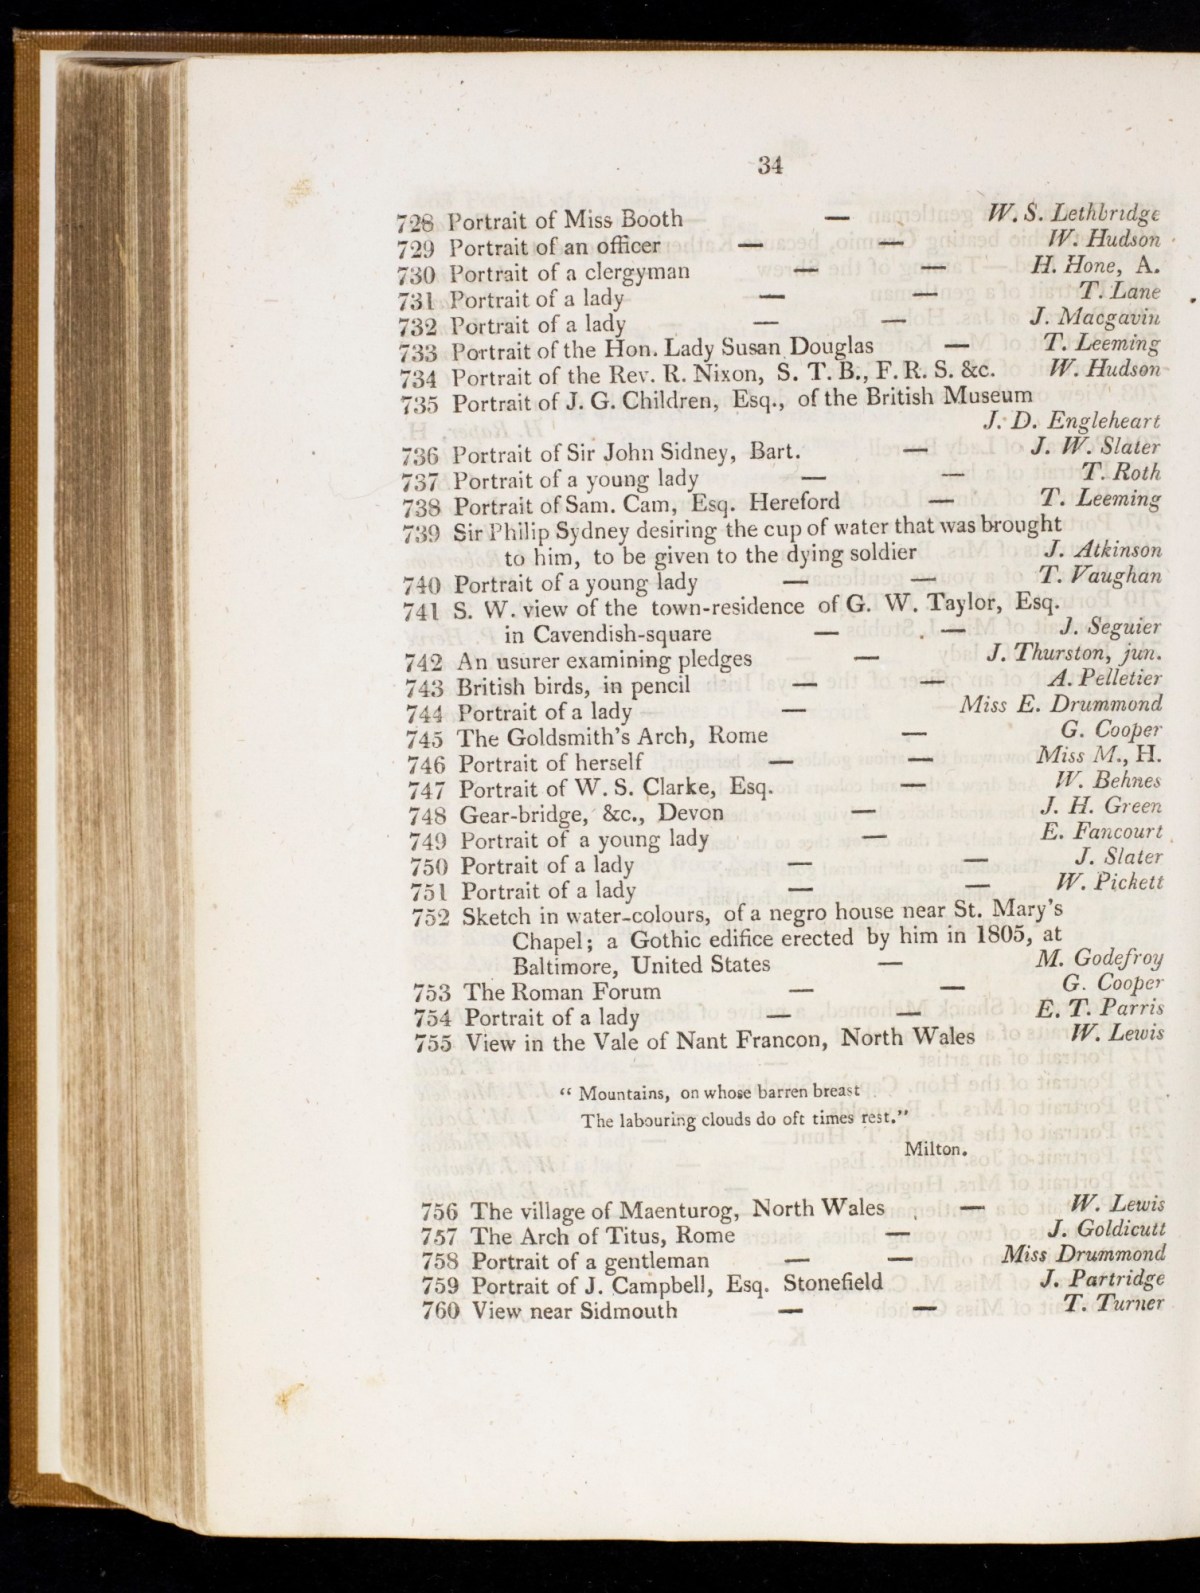 34
728 Portrait of Miss Booth — W. S. Lethbridge
729 Portrait of an officer — — W. Hudson
730 Portrait of a clergyman — — H. Hone, A.
731 Portrait of a lady — — T. Lane
732 Portrait of a lady — — J. Macgavin
733 Portrait of the Hon. Lady Susan Douglas — T. Leeming
734 Portrait of the Rev. R. Nixon, S. T. B., F. R. S. &c. W. Hudson
735 Portrait of J. G. Children, Esq., of the British Museum
J. D. Engleheart
736 Portrait of Sir John Sidney, Bart. — J. W. Slater
737 Portrait of a young lady — — T. Roth
738 Portrait of Sam. Cam, Esq. Hereford — T. Leeming
739 Sir Philip Sydney desiring the cup of water that was brought
to him, to be given to the dying soldier J. Atkinson
740 Portrait of a young lady — — T. Vaughan
741 S. W. view of the town-residence of G. W. Taylor, Esq.
in Cavendish-square — — J. Seguier
742 An usurer examining pledges — J. Thurston, jun.
743 British birds, in pencil — — A. Pelletier
744 Portrait of a lady — Miss E. Drummond
745 The Goldsmith's Arch, Rome — G. Cooper
746 Portrait of herself — — Miss M., H.
747 Portrait of W. S. Clarke, Esq. — W. Behnes
748 Gear-bridge, &c., Devon — J. H. Green
749 Portrait of a young lady — E. Fancourt
750 Portrait of a lady — — J. Slater
751 Portrait of a lady — — W. Pickett
752 Sketch in water-colours, of a negro house near St. Mary's
Chapel; a Gothic edifice erected by him in 1805, at
Baltimore, United States — M. Godefroy
753 The Roman Forum — — G. Cooper
754 Portrait of a lady — — E. T. Parris
755 View in the Vale of Nant Francon, North Wales W. Lewis
“ Mountains, on whose barren breast
The labouring clouds do oft times rest.”
Milton.
756 The village of Maenturog, North Wales — W. Lewis
757 The Arch of Titus, Rome — J. Goldicutt
758 Portrait of a gentleman — — Miss Drummond
759 Portrait of J. Campbell, Esq. Stonefield J. Partridge
760 View near Sidmouth — — T. Turner